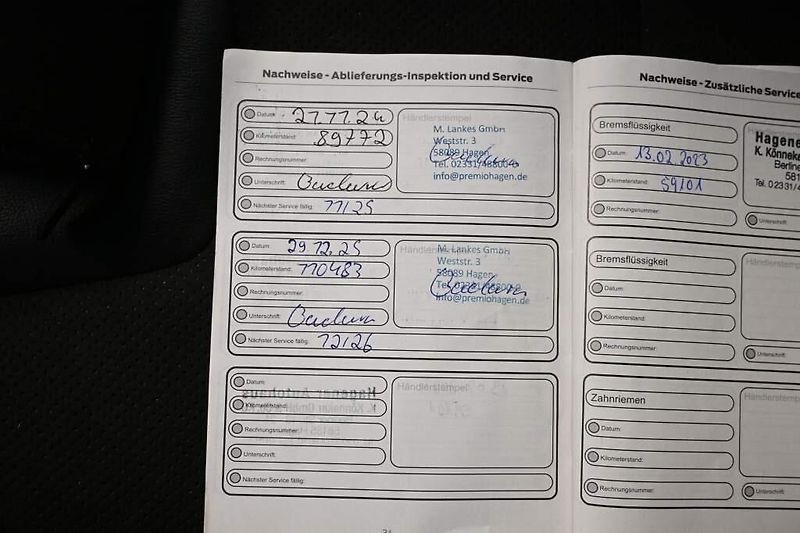 Nachweise - Ablieferungs-Inspektion und Service
Datum: 27.11.24
Kilometerstand: 89772
Rechnungsnummer:
Unterschrift:
Nächster Service fällig: 11/25
Händlerstempel
M. Lankes GmbH
Weststr. 3
58089 Hagen
Tel. 02331/48800-0
info@premiohagen.de
Datum: 29.12.25
Kilometerstand: 110483
Rechnungsnummer:
Unterschrift:
Nächster Service fällig: 12/26
M. Lankes GmbH
Weststr. 3
58089 Hagen
info@premiohagen.de
Datum:
Kilometerstand:
Rechnungsnummer:
Unterschrift:
Nächster Service fällig:
Händlerstempel
Nachweise - Zusätzliche Service
Bremsflüssigkeit
Datum: 13.02.2023
Kilometerstand: 59101
Rechnungsnummer:
Hagene
K. Könneka
Berline
581
Tel. 02331/4
Unterschrift:
Bremsflüssigkeit
Datum:
Kilometerstand:
Rechnungsnummer:
Händlerstem
Unterschrift:
Zahnriemen
Datum:
Kilometerstand:
Rechnungsnummer:
Händlerstem
Unterschrift: